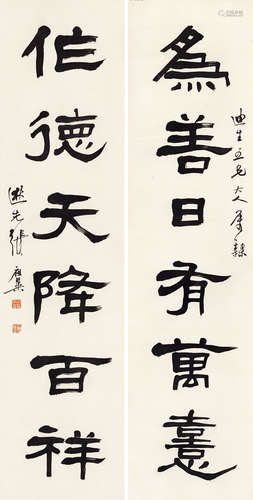 為善日有萬憙
迪生五兄大人屬隸
作德天降百祥
遯先張祖翼